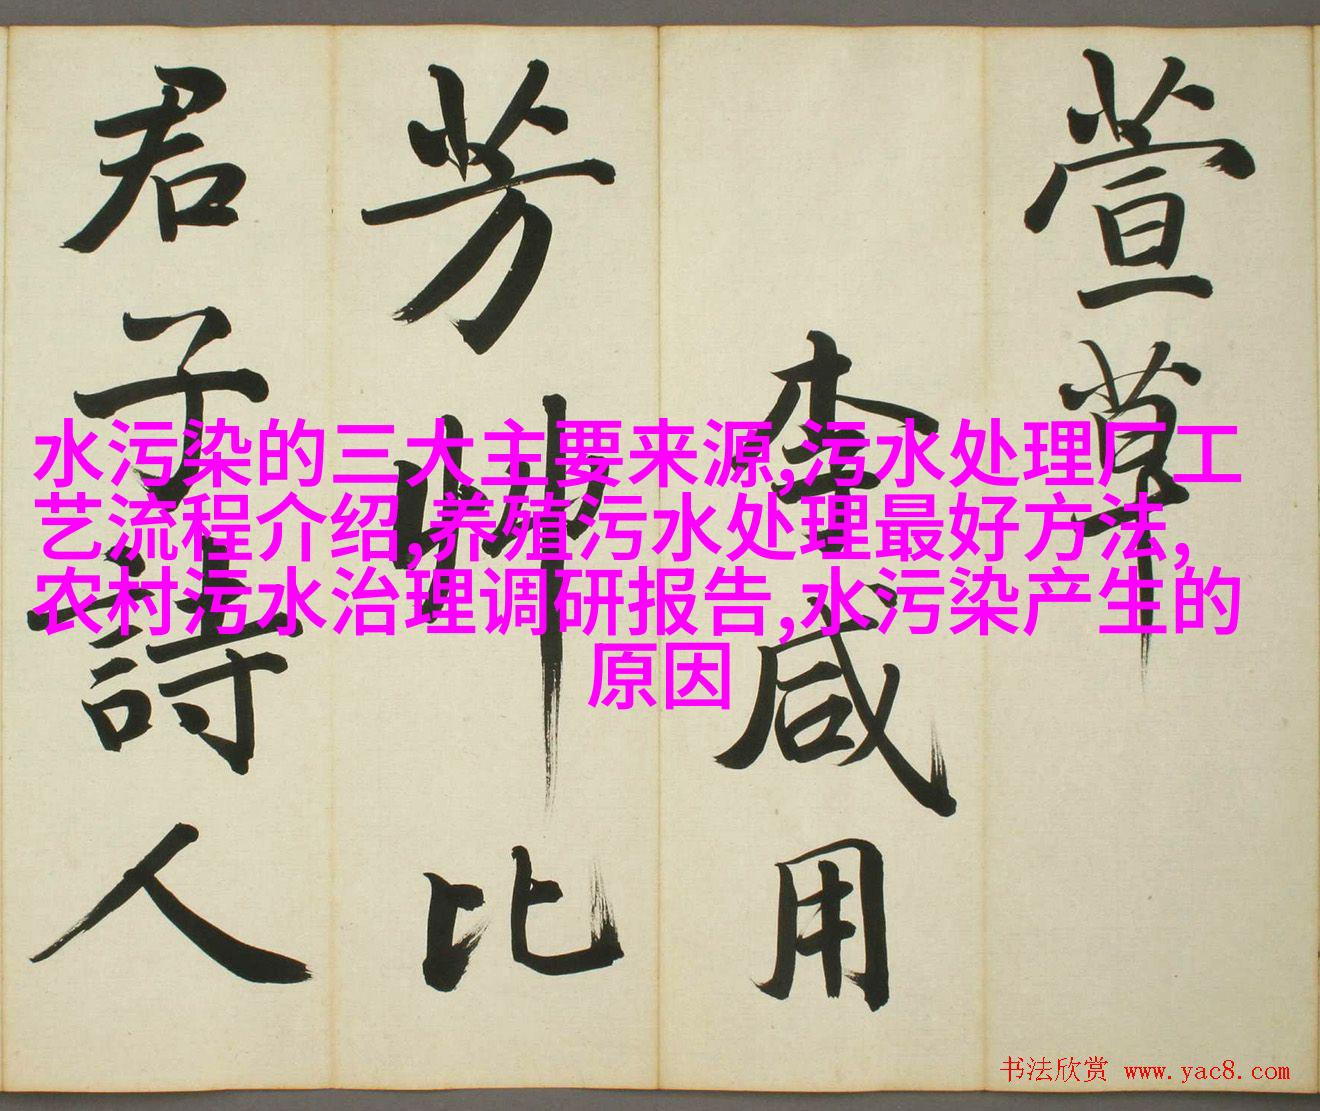 萱草
李咸用
芳艸比
君子詩人
水污染的三大主要来源,污水处理厂工
艺流程介绍,养殖污水处理最好方法,
农村污水治理调研报告,水污染产生的
原因
书法欣赏 www.yac8.com